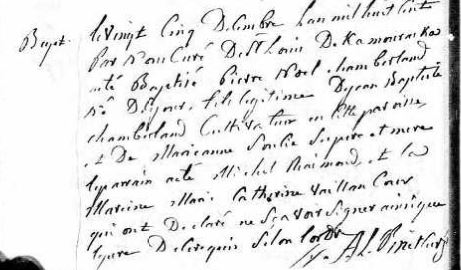 Bapt. le vingt cinq Decembre L'an mil huit cent
par Nous Curé De St Louis De Kamouraska
a été Baptisé Pierre Noel chamberland
né De ce jour, fils légitime De jean Baptiste
chamberland Cultivateur en cette paroisse,
et De Marieanne Soulie Ses pere et mere
le parain a été Michel Raimond, et la
Mareine Marie Catherine Vaillancour
qui ont Declaré ne Sçavoir Signer ainsi que
le pere De ce requis Selon l'ordce